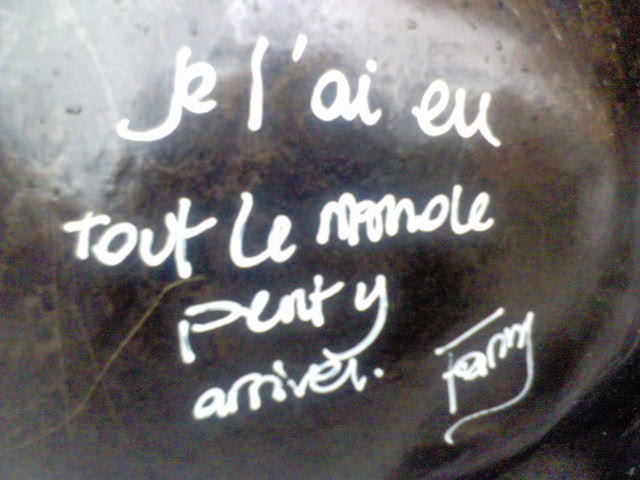 Je l'ai eu
tout le monde
peut y
arriver.
Fanny